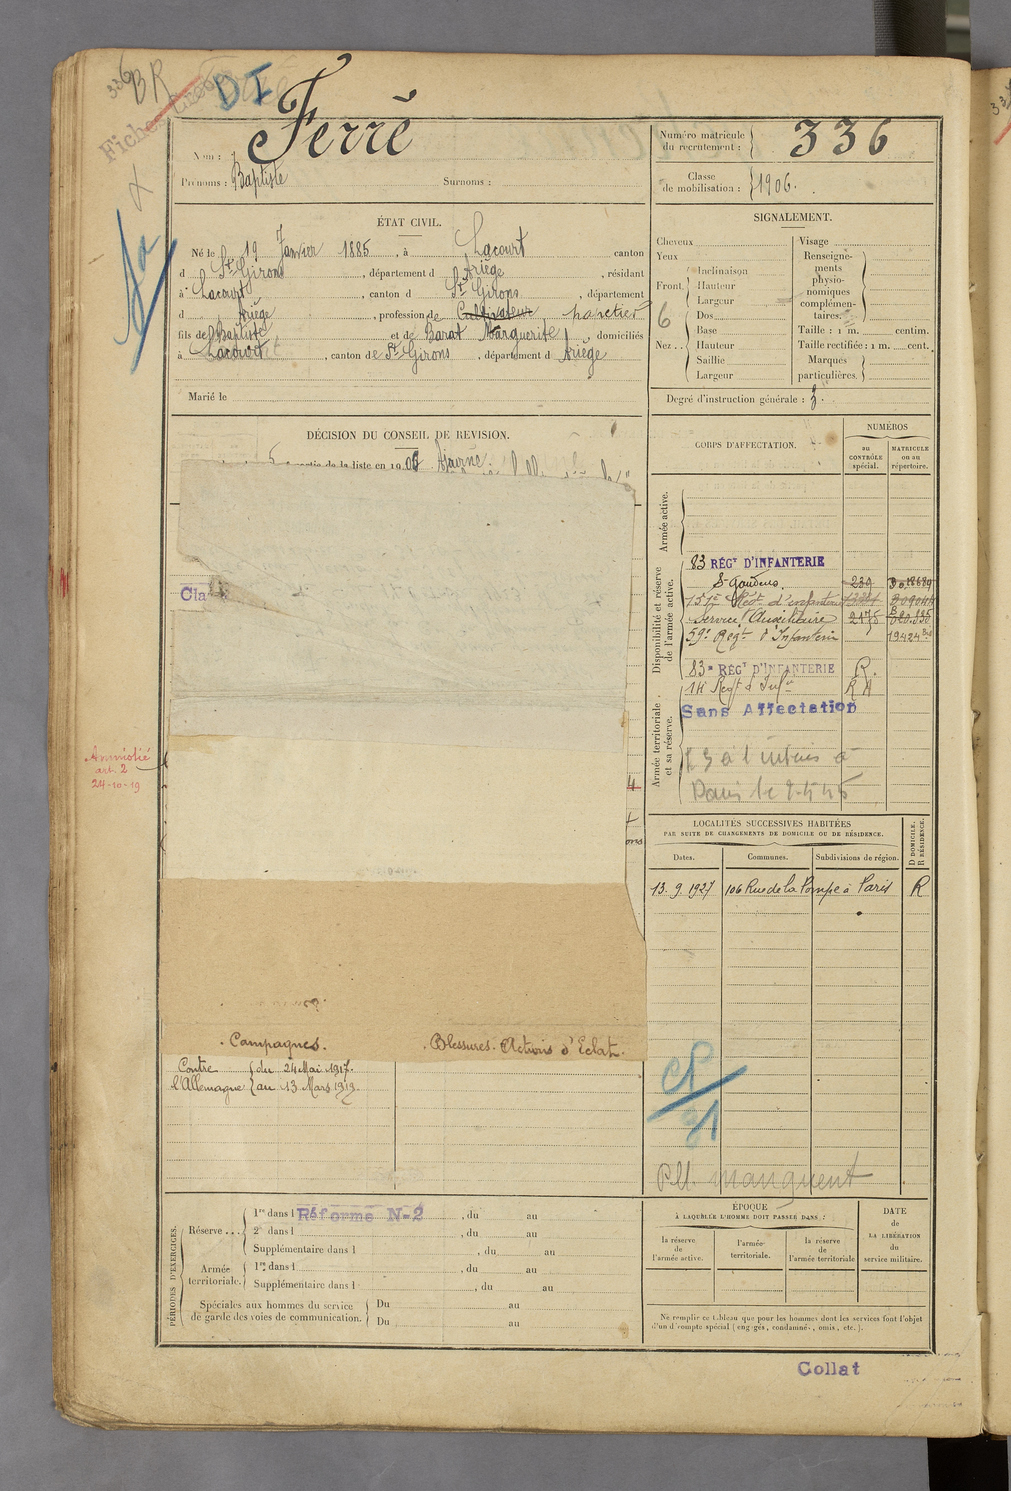 336
BR
DI
Fiches
Ferré
Nom :
Prénoms : Baptiste Surnoms :
Numéro matricule du recrutement : 336
Classe de mobilisation : 1906.
ÉTAT CIVIL.
Né le 19 Janvier 1885, à Lacourt canton
d St Girons, département d Ariège, résidant
à Lacourt, canton d St Girons, département
d Ariège, profession de Cultivateur
fils de Baptiste et de Barat Marguerite domiciliés
à Lacourt, canton de St Girons, département d Ariège
Marié le
SIGNALEMENT.
Cheveux
Yeux
Front. Inclinaison
Hauteur
Largeur
6
Nez.. Dos
Base
Hauteur
Saillie
Largeur
Visage
Renseigne-
ments
physio-
nomiques
complémen-
taires.
Taille : 1 m. centim.
Taille rectifiée : 1 m. cent.
Marques
particulières.
Degré d'instruction générale : 3.
DÉCISION DU CONSEIL DE REVISION.
partie de la liste en 190 Ajourné.
Cla
Amnistié
art. 2
24-10-19
4
ons
CORPS D'AFFECTATION.
NUMÉROS
au CONTRÔLE spécial.
MATRICULE ou au répertoire.
Armée active.
Disponibilité et réserve de l'armée active.
Armée territoriale et sa réserve.
83 RÉGT D'INFANTERIE
St Gaudens. 239
Regt d'infanterie
Service Auxiliaire 2175
59e Regt d'Infanterie 19424
83e RÉGT D'INFANTERIE R.
14e Regt d'Infie
Sans Affectation
à
Paris le
LOCALITÉS SUCCESSIVES HABITÉES
PAR SUITE DE CHANGEMENTS DE DOMICILE OU DE RÉSIDENCE.
D DOMICILE.
R RÉSIDENCE.
Dates. Communes. Subdivisions de région.
13.9.1927 106 Rue de la Pompe à Paris R
. Campagnes. . Blessures. Actions d'Eclat.
Contre du 24 Mai 1917.
l'Allemagne au 13 Mars 1919.
manquent
PÉRIODES D'EXERCICES.
Réserve... 1re dans l Réformé N-2, du au
2e dans l, du au
Supplémentaire dans l, du au
Armée territoriale. 1re dans l, du au
Supplémentaire dans l, du au
Spéciales aux hommes du service de garde des voies de communication. Du au
Du au
ÉPOQUE
À LAQUELLE L'HOMME DOIT PASSER DANS :
la réserve de l'armée active.
l'armée territoriale.
la réserve de l'armée territoriale
DATE
de
LA LIBÉRATION
du
service militaire.
Ne remplir ce tableau que pour les hommes dont les services font l'objet
d'un décompte spécial (engagés, condamnés, omis, etc.).
Collat